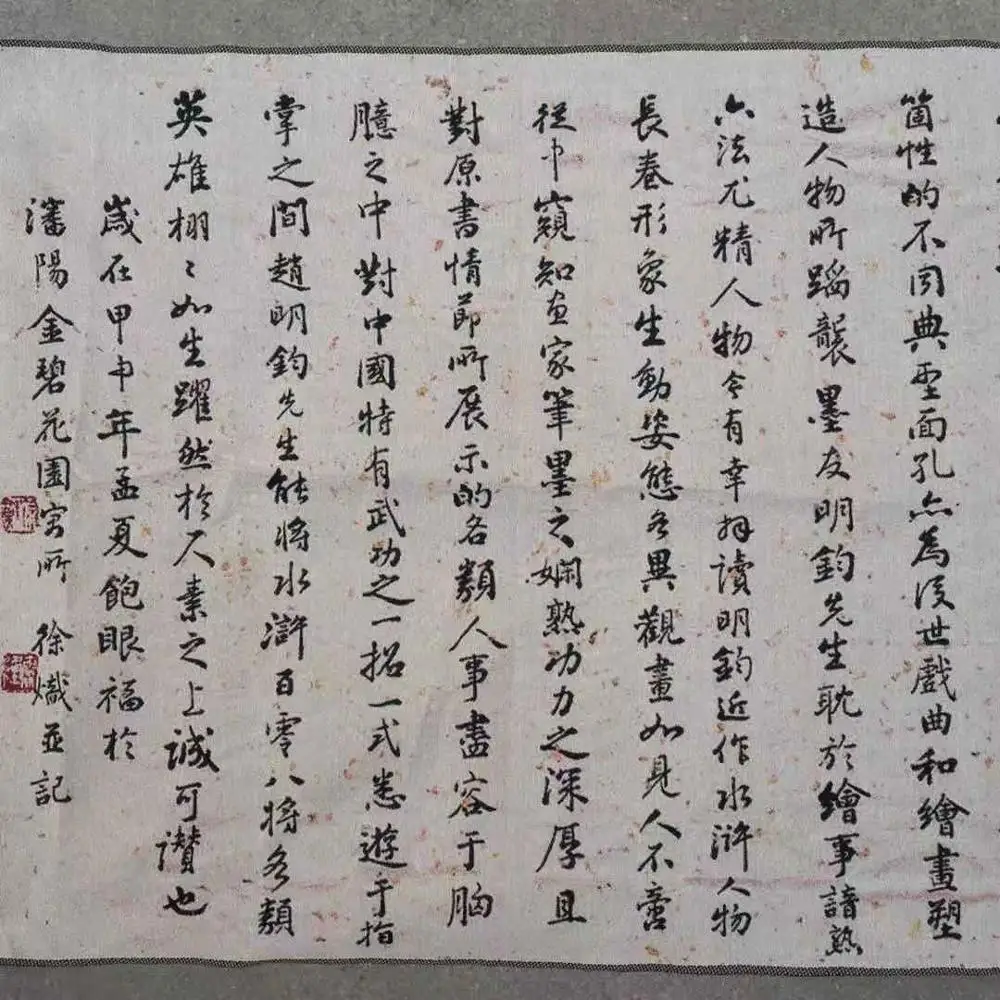 箇性的不同典型面孔亦為後世戲曲和繪畫塑
造人物所蹈襲墨友明鈞先生耽於繪事諳熟
六法尤精人物今有幸拜讀明鈞近作水滸人物
長卷形象生動姿態各異觀畫如見人不啻
從中窺知畫家筆墨之嫻熟功力之深厚且
對原書情節所展示的各類人事盡容于胸
臆之中對中國特有武功之一招一式悉遊于指
掌之間趙明鈞先生能將水滸百零八將各類
英雄栩々如生躍然於尺素之上誠可讚也
歲在甲申年孟夏飽眼福於
瀋陽金碧花園寓所 徐熾並記